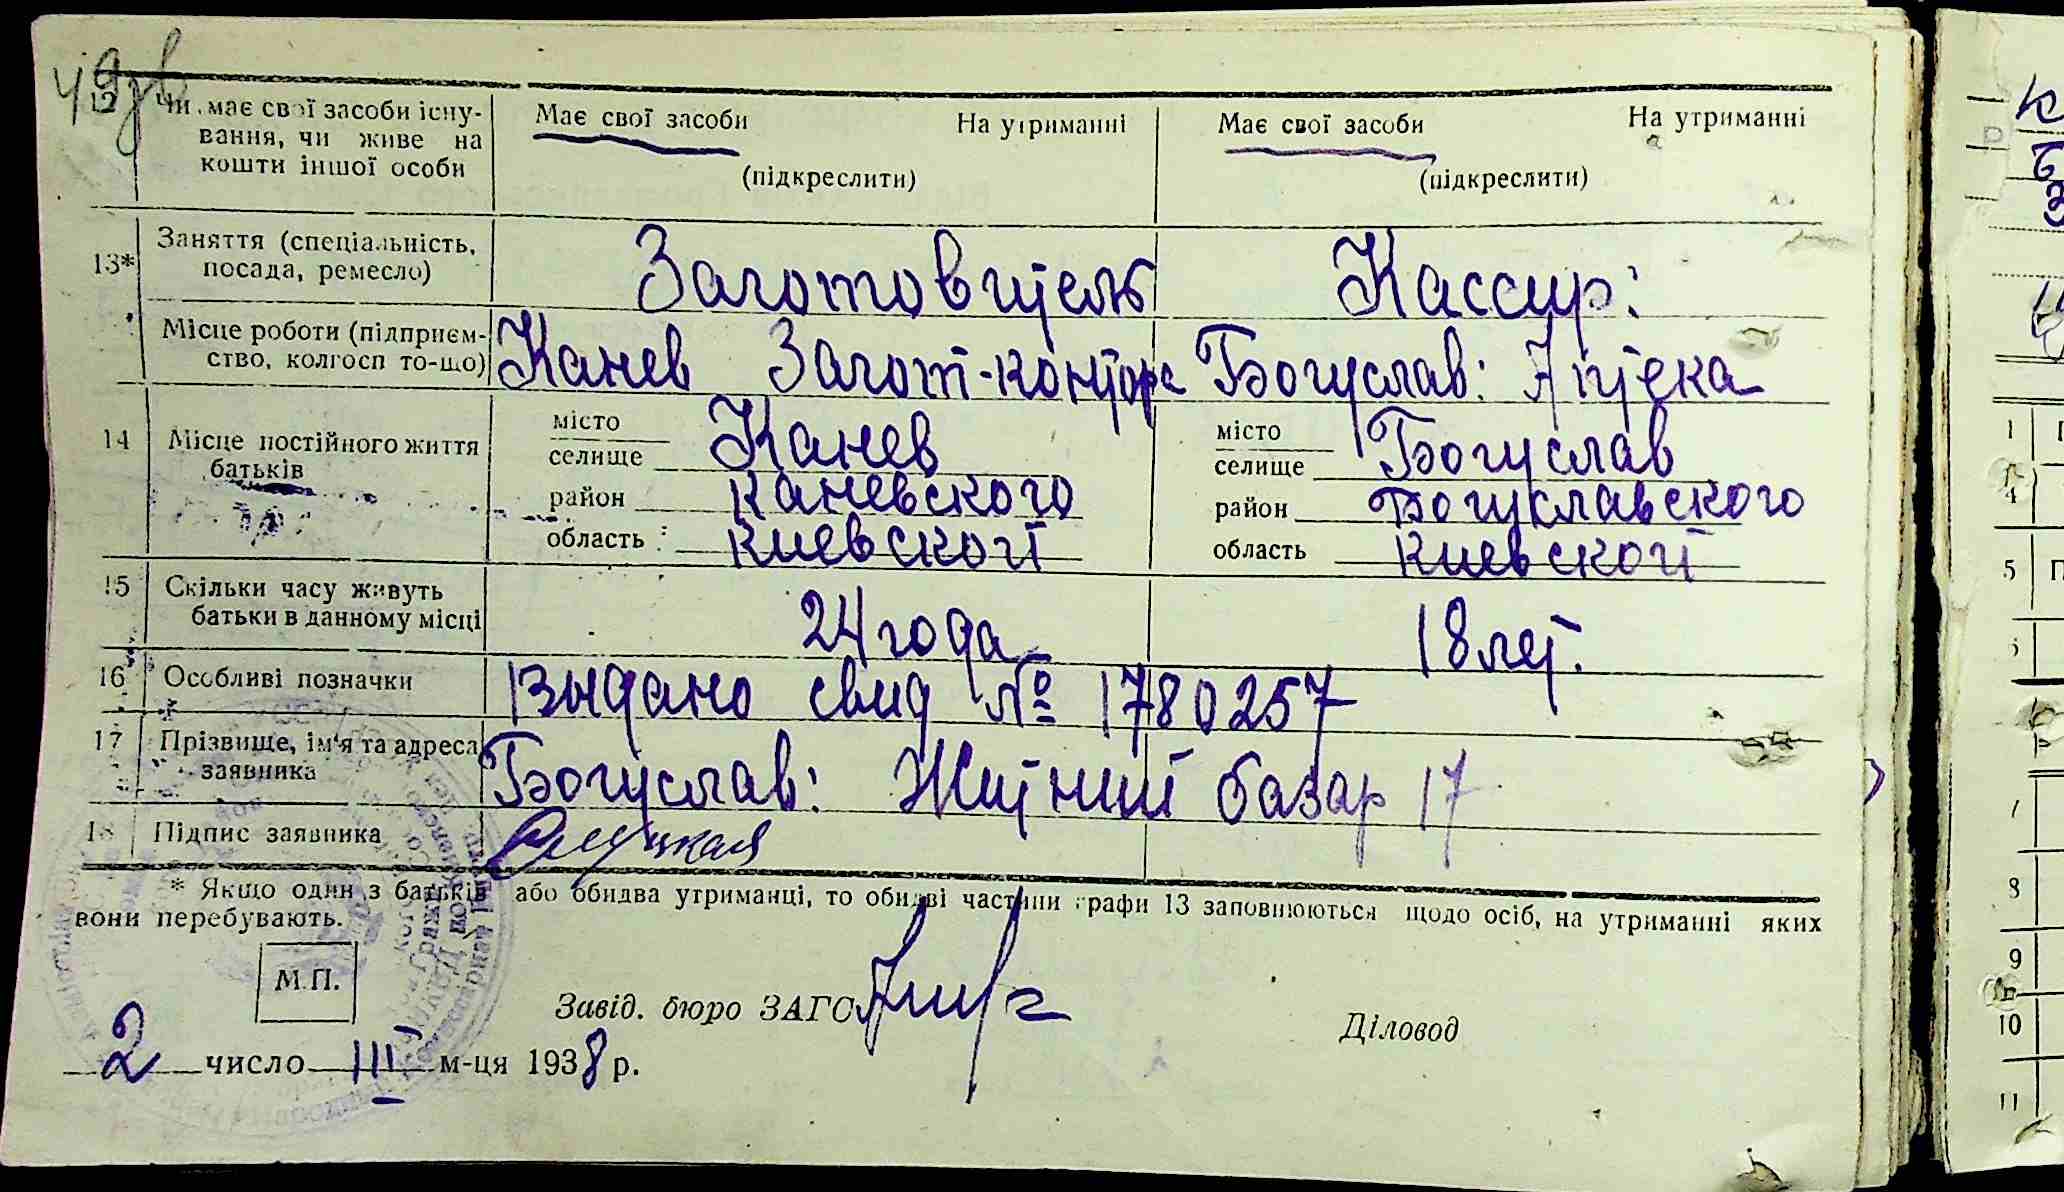 12 Чи має свої засоби існу-
вання, чи живе на
кошти іншої особи
Має свої засоби На утриманні
(підкреслити)
Має свої засоби На утриманні
(підкреслити)
13* Заняття (спеціальність,
посада, ремесло)
Заготовитель Кассир:
Місце роботи (підприєм-
ство, колгосп то-що)
Канев Загот-контора Богуслав: Аптека
14 Місце постійного життя
батьків
місто
селище Канев
район каневского
область киевской
місто
селище Богуслав
район Богуславского
область киевской
15 Скільки часу живуть
батьки в данному місці
24 года 18 лет.
16 Особливі позначки
Выдано свид № 1780257
17 Прізвище, ім'я та адреса
заявника
Богуслав: Житний базар 17
18 Підпис заявника
* Якщо один з батьків або обидва утриманці, то обидві частини графи 13 заповнюються щодо осіб, на утриманні яких
вони перебувають.
М.П.
Завід. бюро ЗАГС
Діловод
2 число III м-ця 1938 р.
1
4
5
7
8
9
10
11